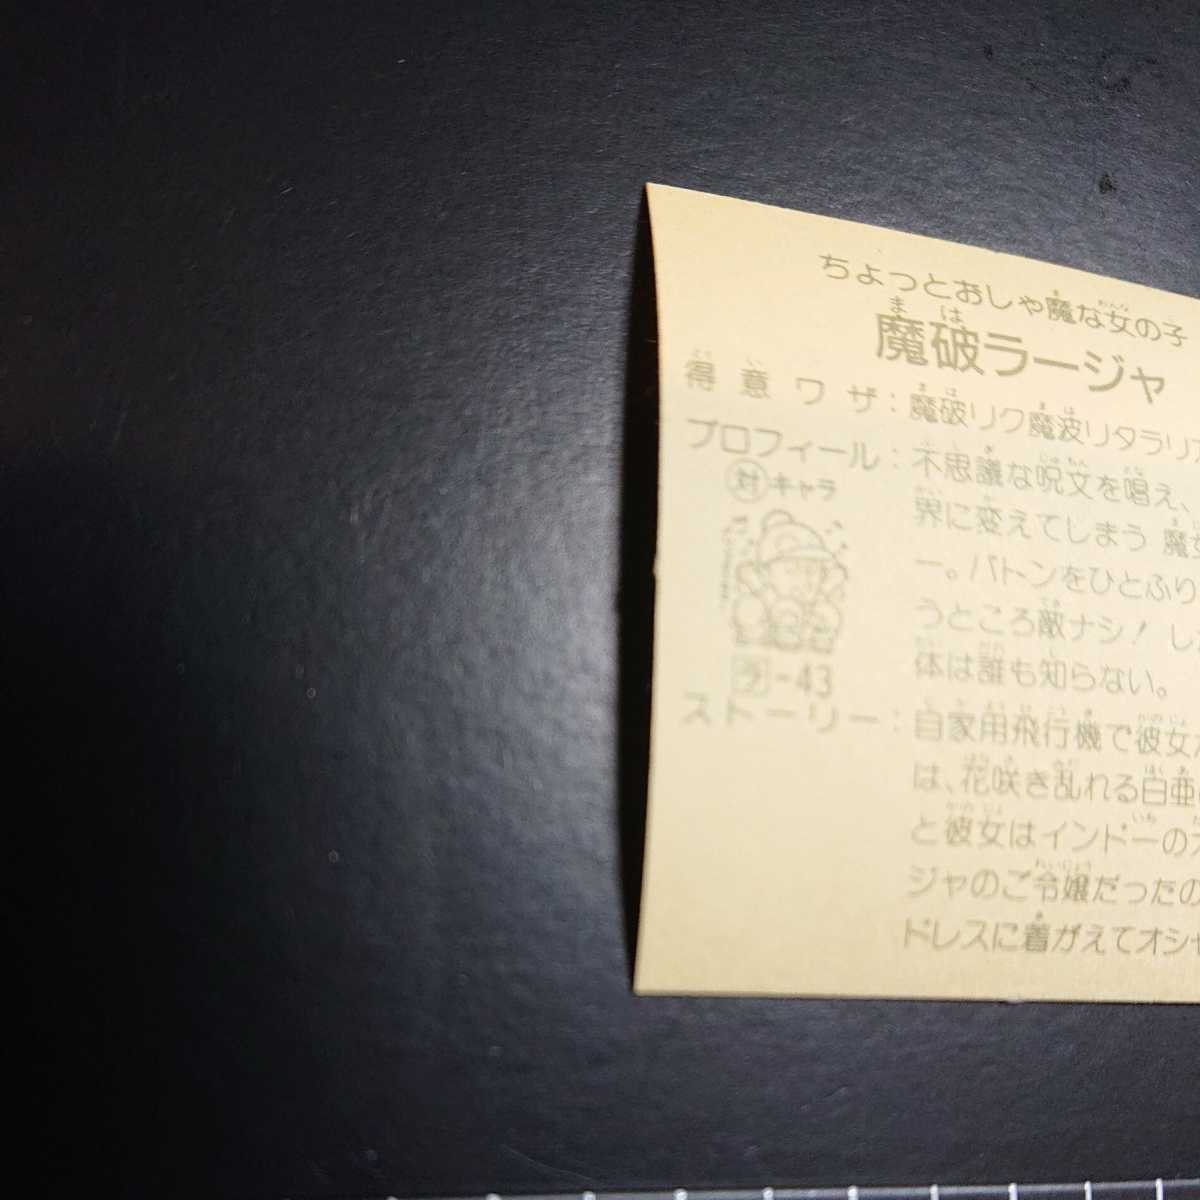 ちょっとおしゃ魔な女の子
魔破ラージャ
得意ワザ:魔破リク魔波リタラリ
プロフィール:不思議な呪文を唱え、
対キャラ
界に変えてしまう 魔
ー。バトンをひとふり
うところ敵ナシ! し
体は誰も知らない。
ラ-43
ストーリー:自家用飛行機で彼女
は、花咲き乱れる白亜
と彼女はインドーの
ジャのご令嬢だったの
ドレスに着がえてオシャ